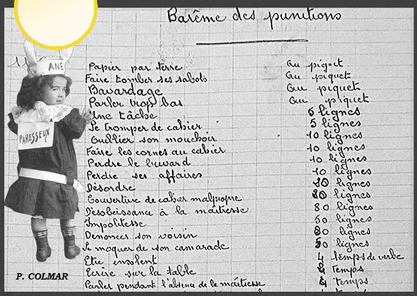 Barème des punitions
ANE
PARESSEUX
Papier par terre Au piquet
Faire tomber ses sabots Au piquet
Bavardage Au piquet
Parler trop bas Au piquet
Une tâche 5 lignes
Se tromper de cahier 5 lignes
Oublier son mouchoir 10 lignes
Faire les cornes au cahier 10 lignes
Perdre le buvard 10 lignes
Perdre ses affaires 10 lignes
Désordre lignes
Couverture de cahier malpropre lignes
Désobéissance à la maîtresse lignes
Impolitesse lignes
Dénoncer son voisin lignes
Se moquer de son camarade lignes
Etre insolent 4 temps de verbe
Ecrire sur la table temps
Parler pendant l'absence de la maîtresse temps
P. COLMAR